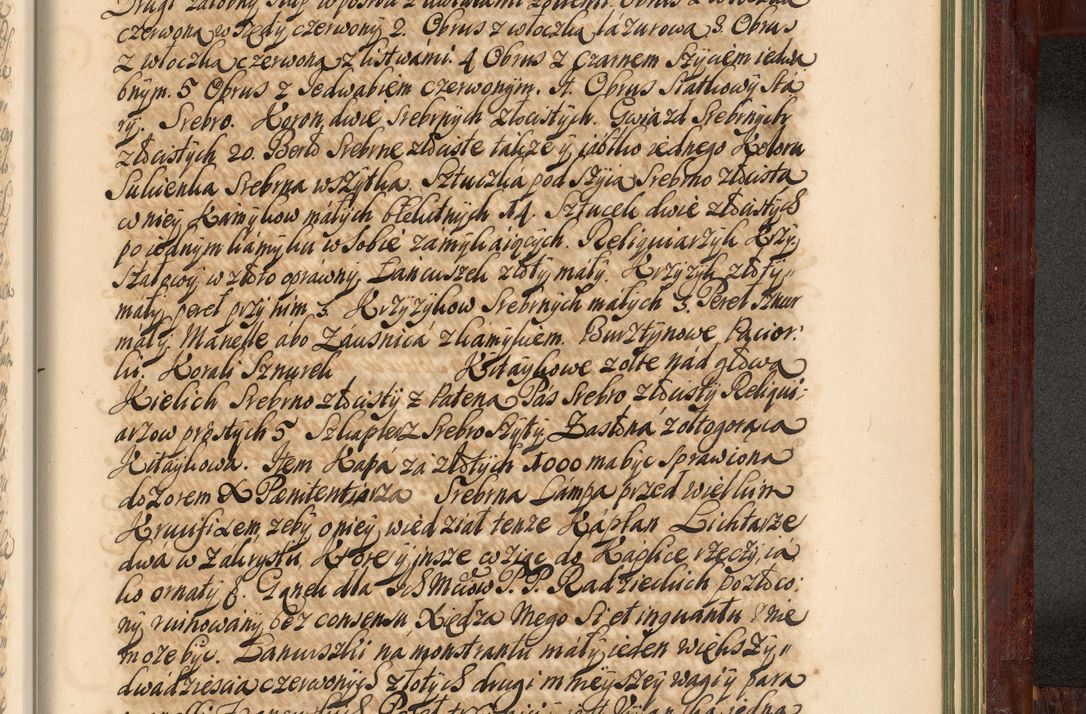 czerwoną w Rzędy czerwony 2. Obrus z włoczką lazurową 3. Obrus
z włoczką czerwoną z listwámi. 4 Obrus z Czarnem szyciem iedwa
bnym. 5 Obrus z Jedwabiem czerwonym. A. Obrus Siatkowy Stá
ry. Srebro. Koron dwie Srebrnych złocistych. Gwiazd Srebrnych
złocistych 20. Berło Srebrne złociste także y iábłko iednego Koloru
Sukienka Srebrna wszytka. Sztuczka pod Szyią Srebrno złocista
w niey Kamykow máłych błękitnych 14. Sztucek dwie złocistych
po iednym kámyku w Sobie zámykáiących. Reliquiarzyk Krzy„
ształowy w złoto oprawny. Łancuszek złoty mały. Krzyżyk złoty„
mały, pereł przy nim 3. Krzyżykow Srebrnych małych 3. Pereł Sznur
mały. Manelle ábo Záusnicá z kámykiem. Bursztynowe Pacior:
ki. Korali Sznurek Kitaykowe żołte nád głową
Kielich Srebrno złocisty z Pateną Pás Srebro złocisty Reliqui:
arzow prostych 5 Szkaplerz Srebro szyty. Zasłoná żołtogorąca
Kitaykowa. Item Kápá zá złotych 1000 ma byc sprawiona
dozorem X Pænitentiarza Srebrna Lámpa przed wielkim
Krucifixem, żeby o niey wiedział tenże Kápłan Lichtarze
dwa w Zakrystii, Ktore y insze wziąc do Káplice rzeczy iá
ko ornaty &. Ganek dla Ich Mciow P. P. Radzieckich pozłoco:
ny ruinowány bez consensu Xiędza Mego Sietinquantu nie
może byc. Łancuszki ná monstrantii máły ieden większy„
dwadziescia czerwonych złotych drugi mnieyszey wagi y para